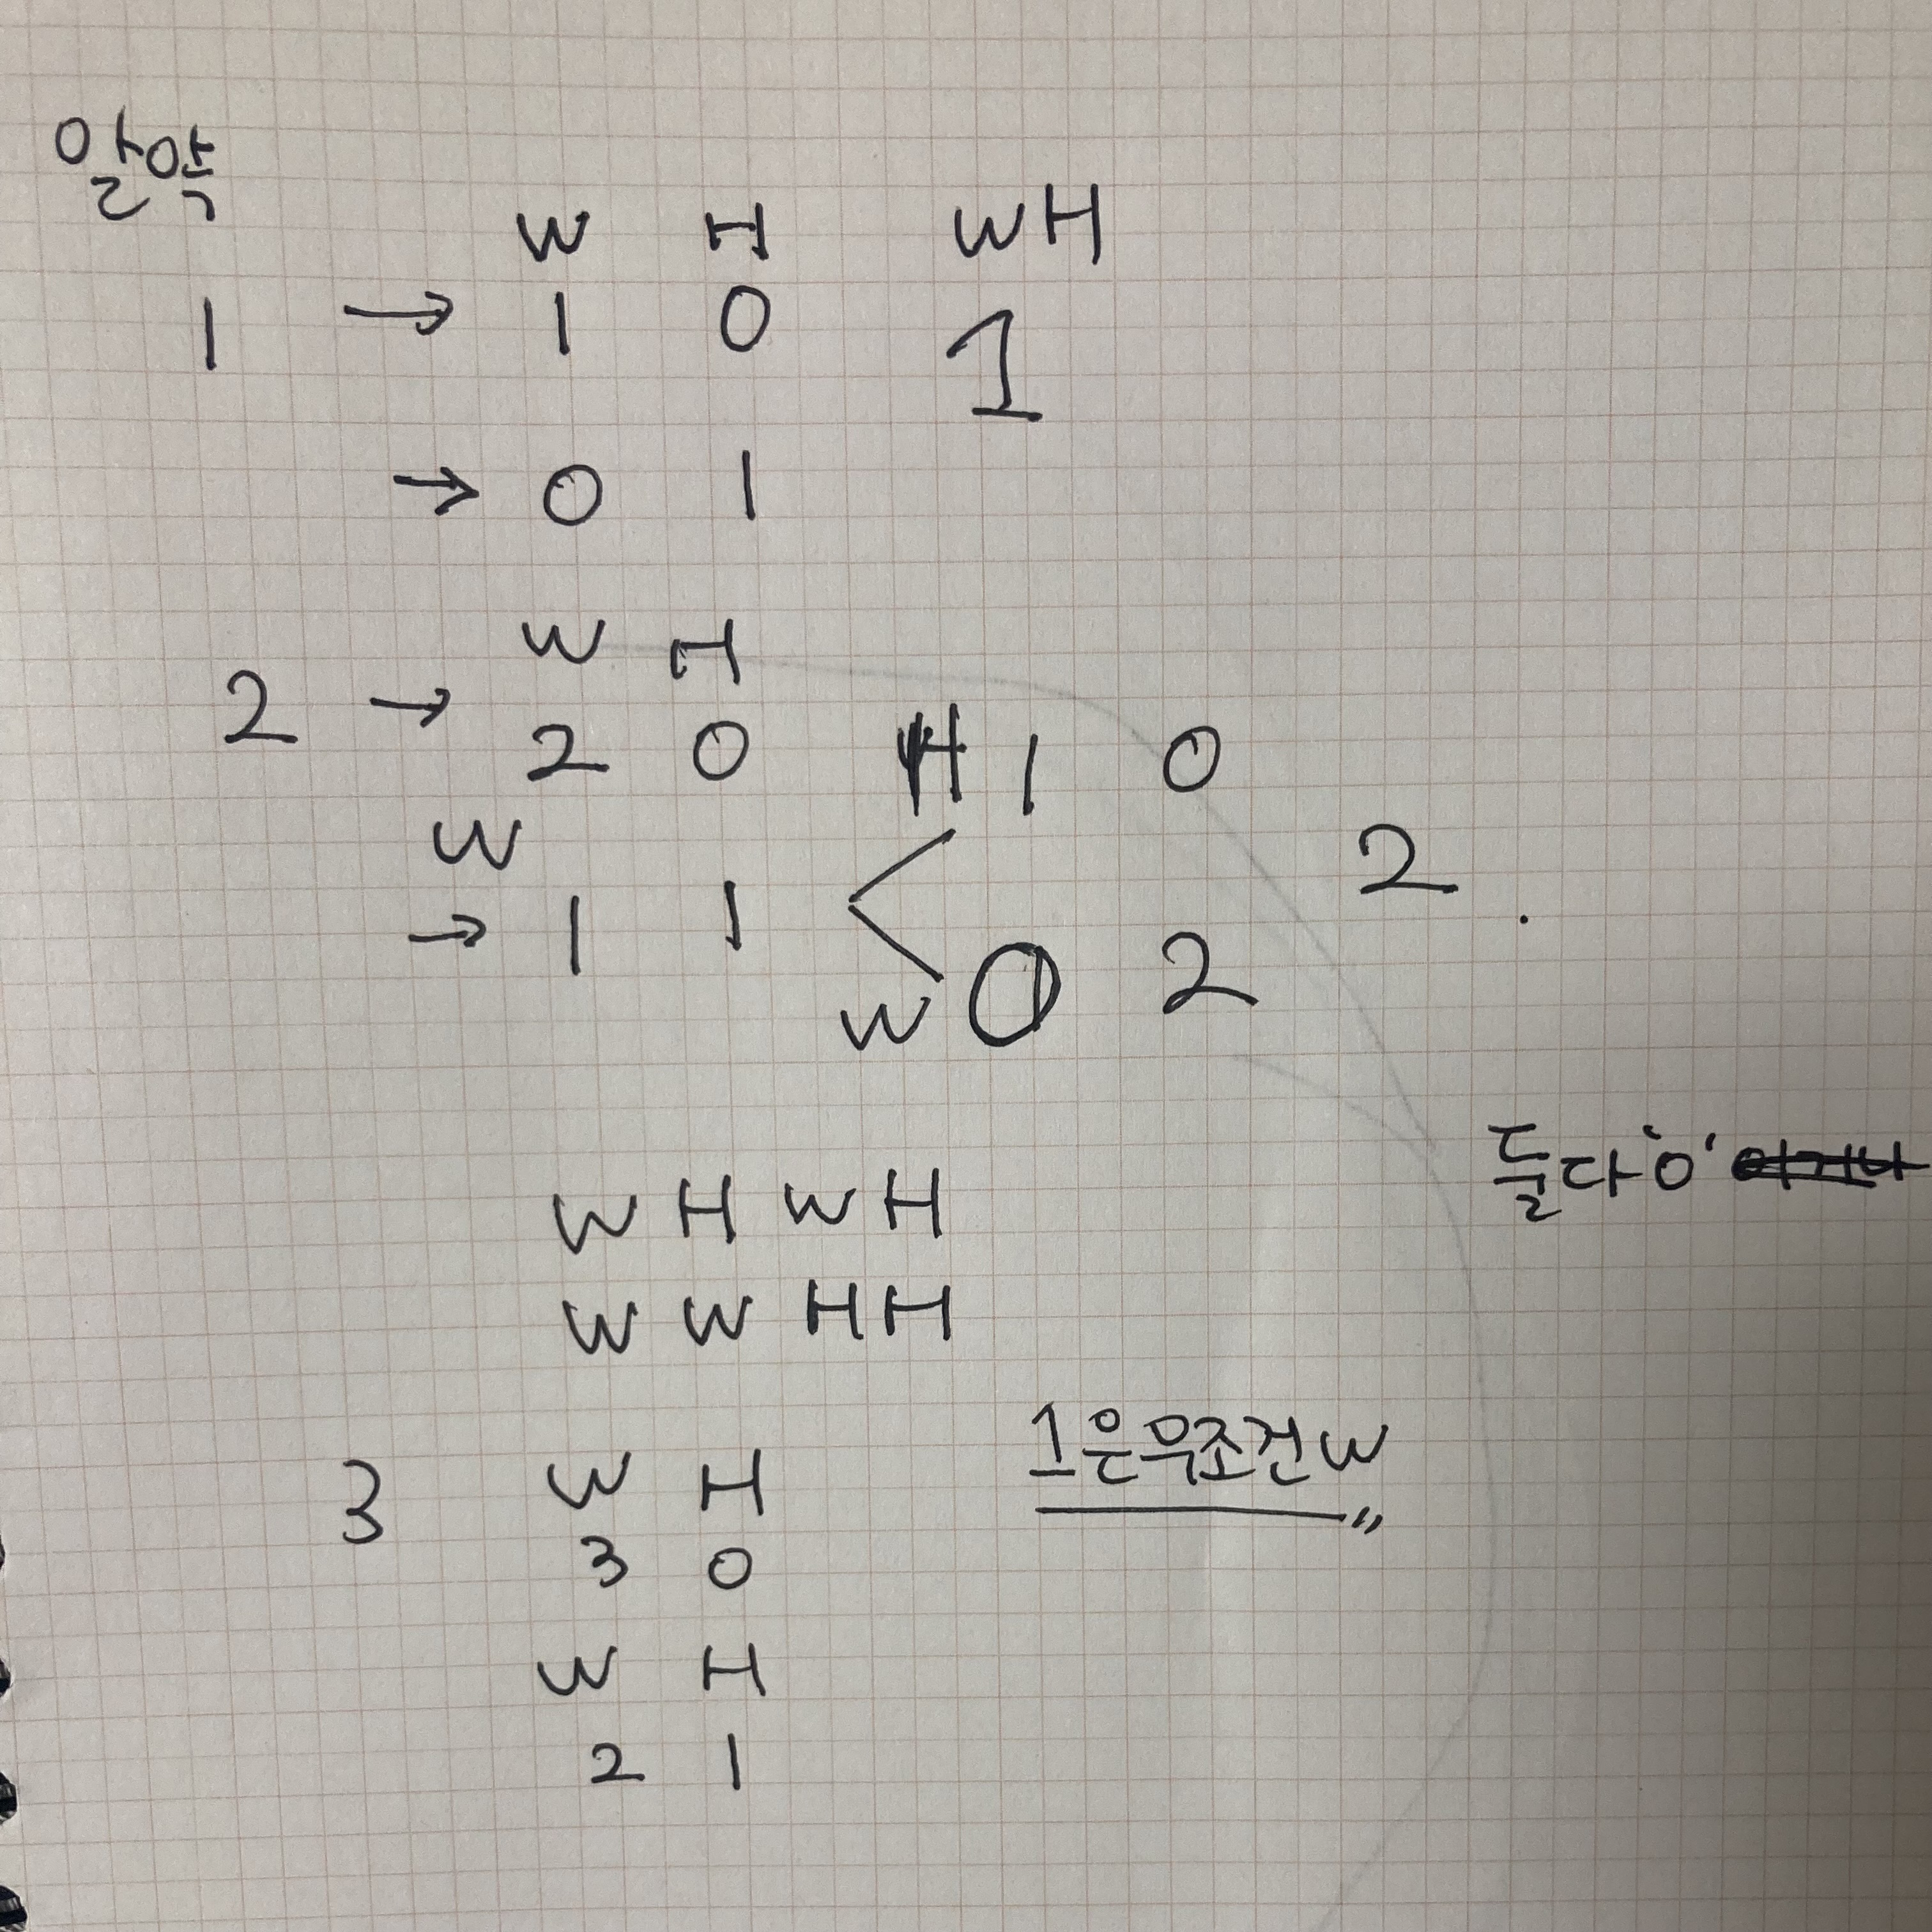 알약
W H WH
1 → 1 0 1
→ 0 1
W H
2 → 2 0 H 1 0
W
→ 1 1 2 .
W 0 2
둘다 '0'
W H W H
W W H H
1은무조건W
3 W H
3 0
W H
2 1